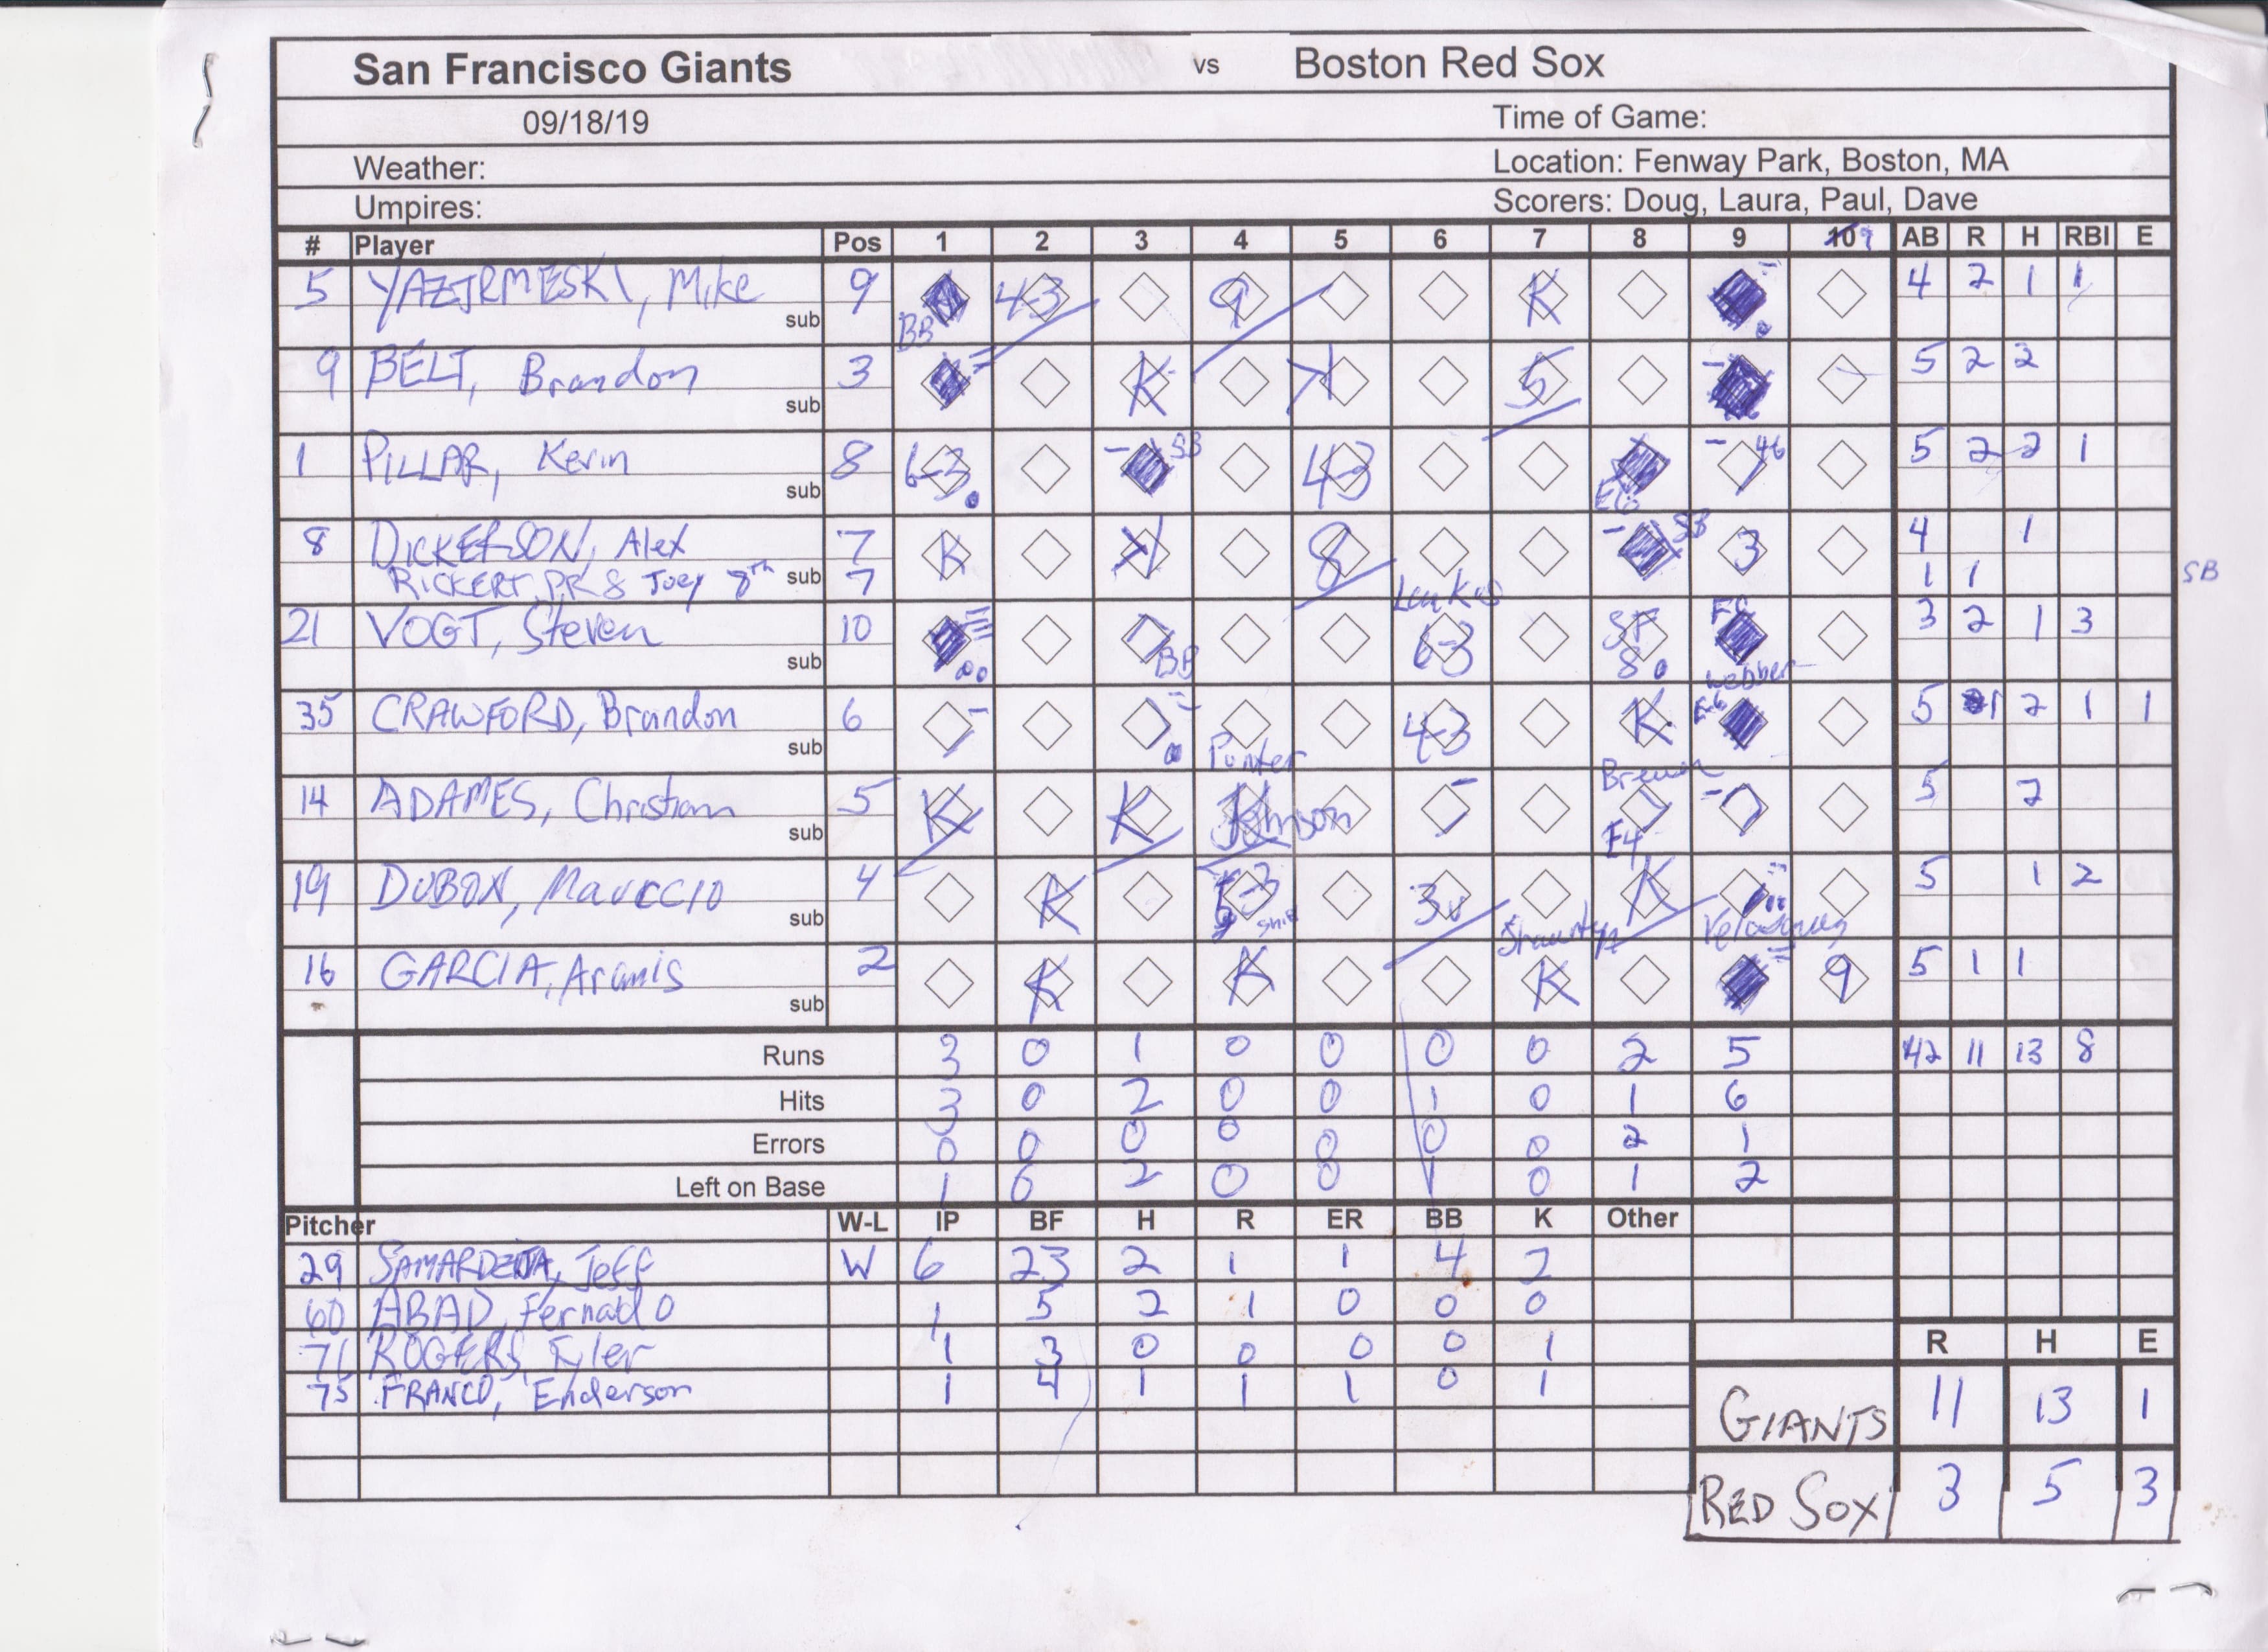 San Francisco Giants vs Boston Red Sox
09/18/19 Time of Game:
Weather: Location: Fenway Park, Boston, MA
Umpires: Scorers: Doug, Laura, Paul, Dave
# Player Pos 1 2 3 4 5 6 7 8 9 10 9 AB R H RBI E
5 YAZTRMESKI, Mike 9 BB 43 9 K 4 2 1 1
sub
9 BELT, Brandon 3 K K 5 5 2 2
sub
1 PILLAR, Kevin 8 6-3 SB 43 E6 46 5 2 2 1
sub
8 DICKERSON, Alex 7 K K 8 SB 3 4 1
RICKERT, PR 8 Joey 8th sub 7 1 1 SB
21 VOGT, Steven 10 BB 63 SF 8 3 2 1 3
sub
35 CRAWFORD, Brandon 6 43 K E6 5 1 2 1 1
sub
14 ADAMES, Christian 5 K K Johnson E4 5 2
sub
19 DUBON, Mauricio 4 K 5-3 3u K 5 1 2
sub
16 GARCIA, Aramis 2 K K K 9 5 1 1
sub
Runs 3 0 1 0 0 0 0 2 5 42 11 13 8
Hits 3 0 2 0 0 1 0 1 6
Errors 0 0 0 0 0 0 0 2 1
Left on Base 1 0 2 0 0 1 0 1 2
Pitcher W-L IP BF H R ER BB K Other
29 SAMARDZIJA, Jeff W 6 23 2 1 1 4 7
60 ABAD, Fernado 1 5 2 1 0 0 0
71 ROGERS, Tyler 1 3 0 0 0 0 1
75 FRANCO, Enderson 1 4 1 1 1 0 1
R H E
GIANTS 11 13 1
RED SOX 3 5 3